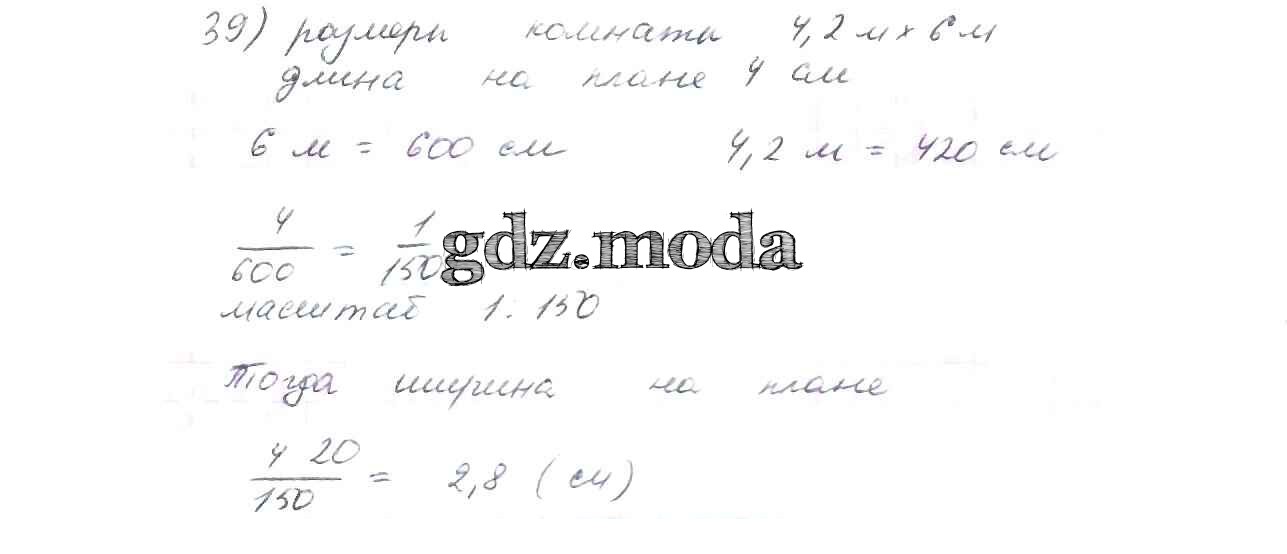 39) размеры комнаты 4,2 м × 6 м
длина на плане 4 см
6 м = 600 см 4,2 м = 420 см
4/600 = 1/150 gdz.moda
масштаб 1:150
Тогда ширина на плане
420/150 = 2,8 (см)